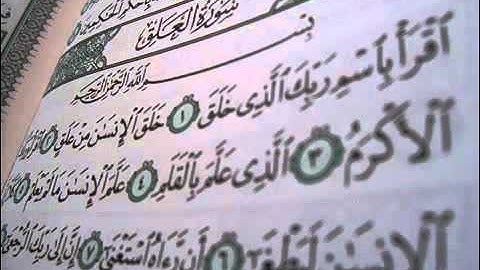 سُورَةُ ٱلْعَلَقِ
بِسْمِ ٱللَّهِ ٱلرَّحْمَٰنِ ٱلرَّحِيمِ
ٱقْرَأْ بِٱسْمِ رَبِّكَ ٱلَّذِى خَلَقَ ١ خَلَقَ ٱلْإِنسَٰنَ مِنْ عَلَقٍ ٢ ٱقْرَأْ
ٱلْأَكْرَمُ ٣ ٱلَّذِى عَلَّمَ بِٱلْقَلَمِ ٤ عَلَّمَ ٱلْإِنسَٰنَ مَا لَمْ يَعْلَمْ ٥
ٱلْإِنسَٰنَ لَيَطْغَىٰٓ ٦ أَن رَّءَاهُ ٱسْتَغْنَىٰٓ ٧ إِنَّ إِلَىٰ رَبِّكَ ٱلرُّجْعَىٰٓ